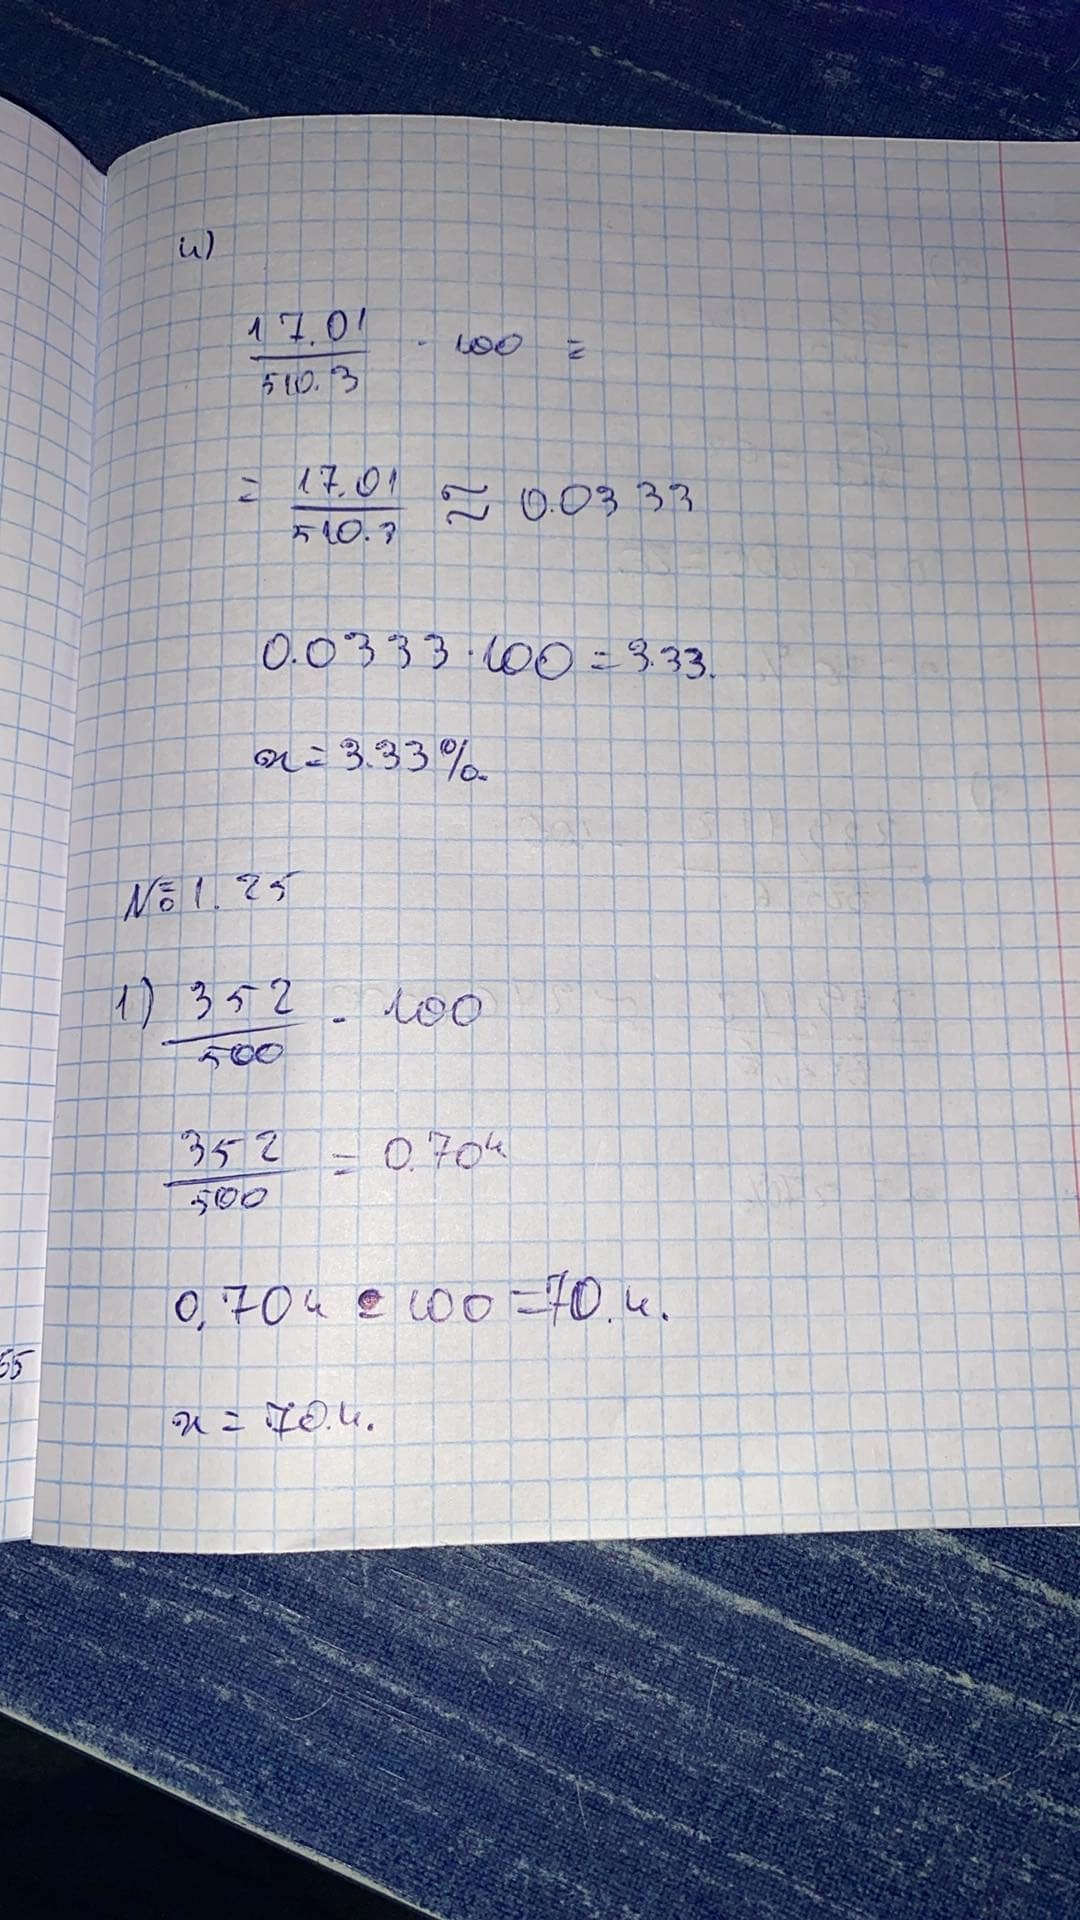 4)
17.01 / 510.3 · 100 =
= 17.01 / 510.3 ≈ 0.0333
0.0333 · 100 = 3.33.
x = 3.33%.
№1.25
1) 352 / 500 · 100
352 / 500 = 0.704
0,704 · 100 = 70.4.
x = 70.4.
55